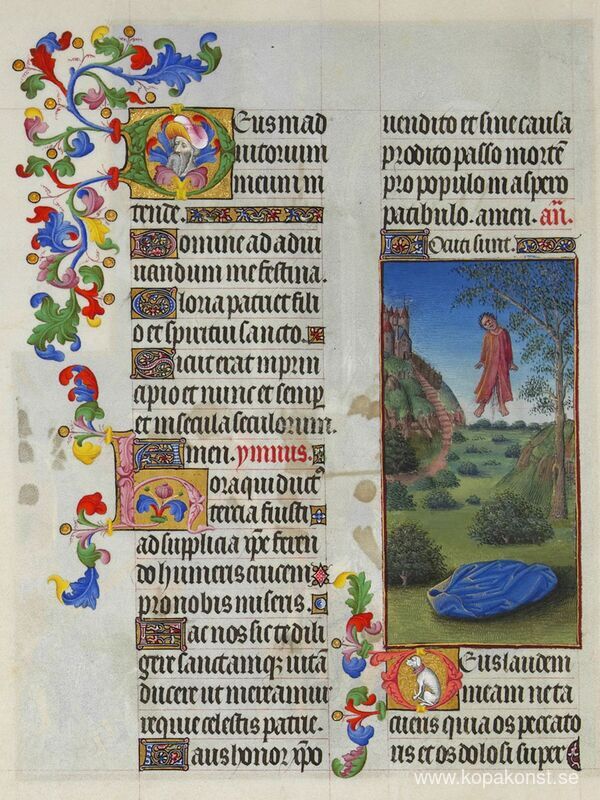 Deus in ad
iutorium
meum in
tende.
Domine ad adiu
uandum me festina.
Gloria patri et fili
o et spiritui sancto.
Sicut erat in prin
cipio et nunc et semp
et in secula seculorum.
Amen. ymnus.
Hora qui duct
tercia fuisti
ad supplicia xpe feren
do humeris crucem
pro nobis miseris.
Fac nos sic te dili
gere sanctamq; uitā
ducere ut mereamur
requie celestis patrie.
Laus honor xpo
uendito et sine causa
prodito passo mortē
pro populo in aspero
patibulo. amen. añ.
Deus laudem
meam ne ta
cueris quia os peccato
ris et os dolosi super
www.kopakonst.se